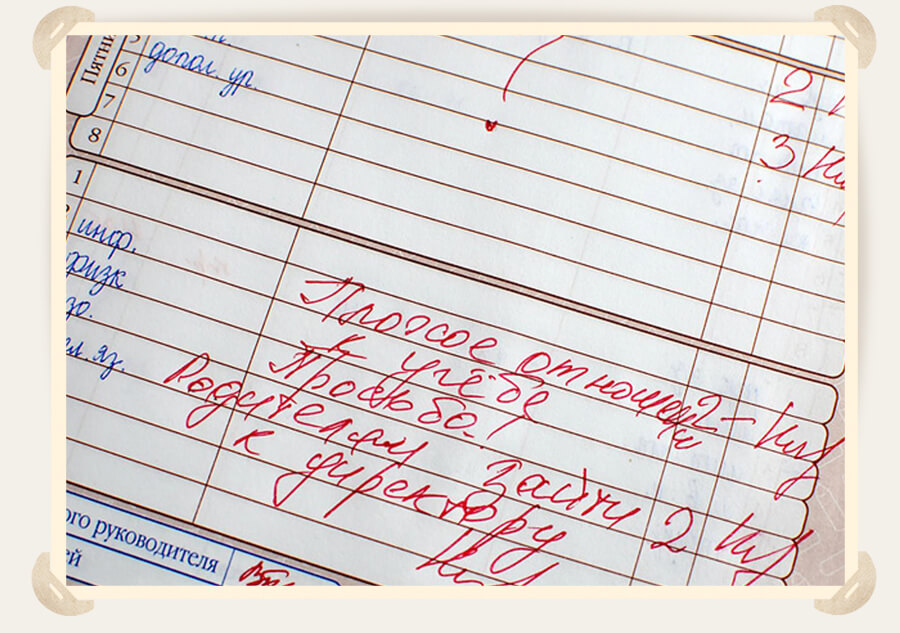 Пятни
5
6 допол. ур.
7
8
2
3
1
инф.
физк
Плохое отношен
к учёбе
2-
Просьба!
Родителям зайти
к директору
2
ого руководителя
ей